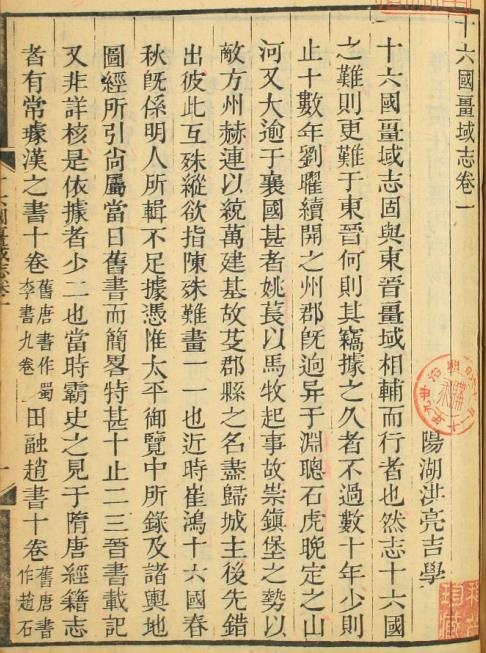 十六國畺域志卷一
陽湖洪亮吉學
十六國畺域志固與東晉畺域相輔而行者也然志十六國
之難則更難于東晉何則其竊據之久者不過數十年少則
止十數年劉曜續開之州郡旣逈异于淵聰石虎晚定之山
河又大逾于襄國甚者姚萇以馬牧起事故崇鎮堡之勢以
敵方州赫連以統萬建基故芟郡縣之名盡歸城主後先錯
出彼此互殊縱欲指陳殊難畫一一也近時崔鴻十六國春
秋旣係明人所輯不足據憑惟太平御覽中所錄及諸輿地
圖經所引尙屬當日舊書而簡畧特甚十止二三晉書載記
又非詳核是依據者少二也當時霸史之見于隋唐經籍志
者有常璩漢之書十卷舊唐書作蜀李書九卷田融趙書十卷舊唐書作趙石
十六國畺域志卷一
一